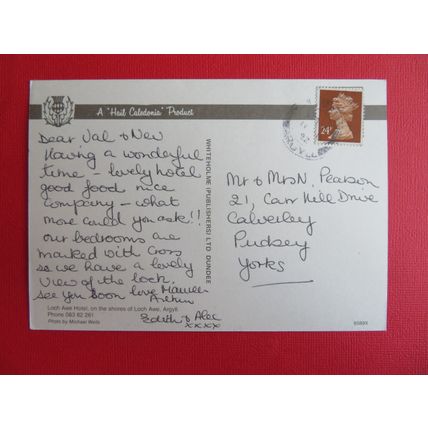 A "Hail Caledonia" Product
24P
Dear Val & Nev
Having a wonderful
time - lovely hotel
good food nice
company - what
more could you ask!!
our bedrooms are
marked with Cross
so we have a lovely
view of the loch.
see you soon love Maureen
Arthur
Edith & Alec
xxxx
WHITEHOLME (PUBLISHERS) LTD DUNDEE
Mr & Mrs N. Pearson
21, Carr Hill Drive
Calverley
Pudsey
Yorks
Loch Awe Hotel, on the shores of Loch Awe, Argyll
Phone 083 82 261
Photo by Michael Wells